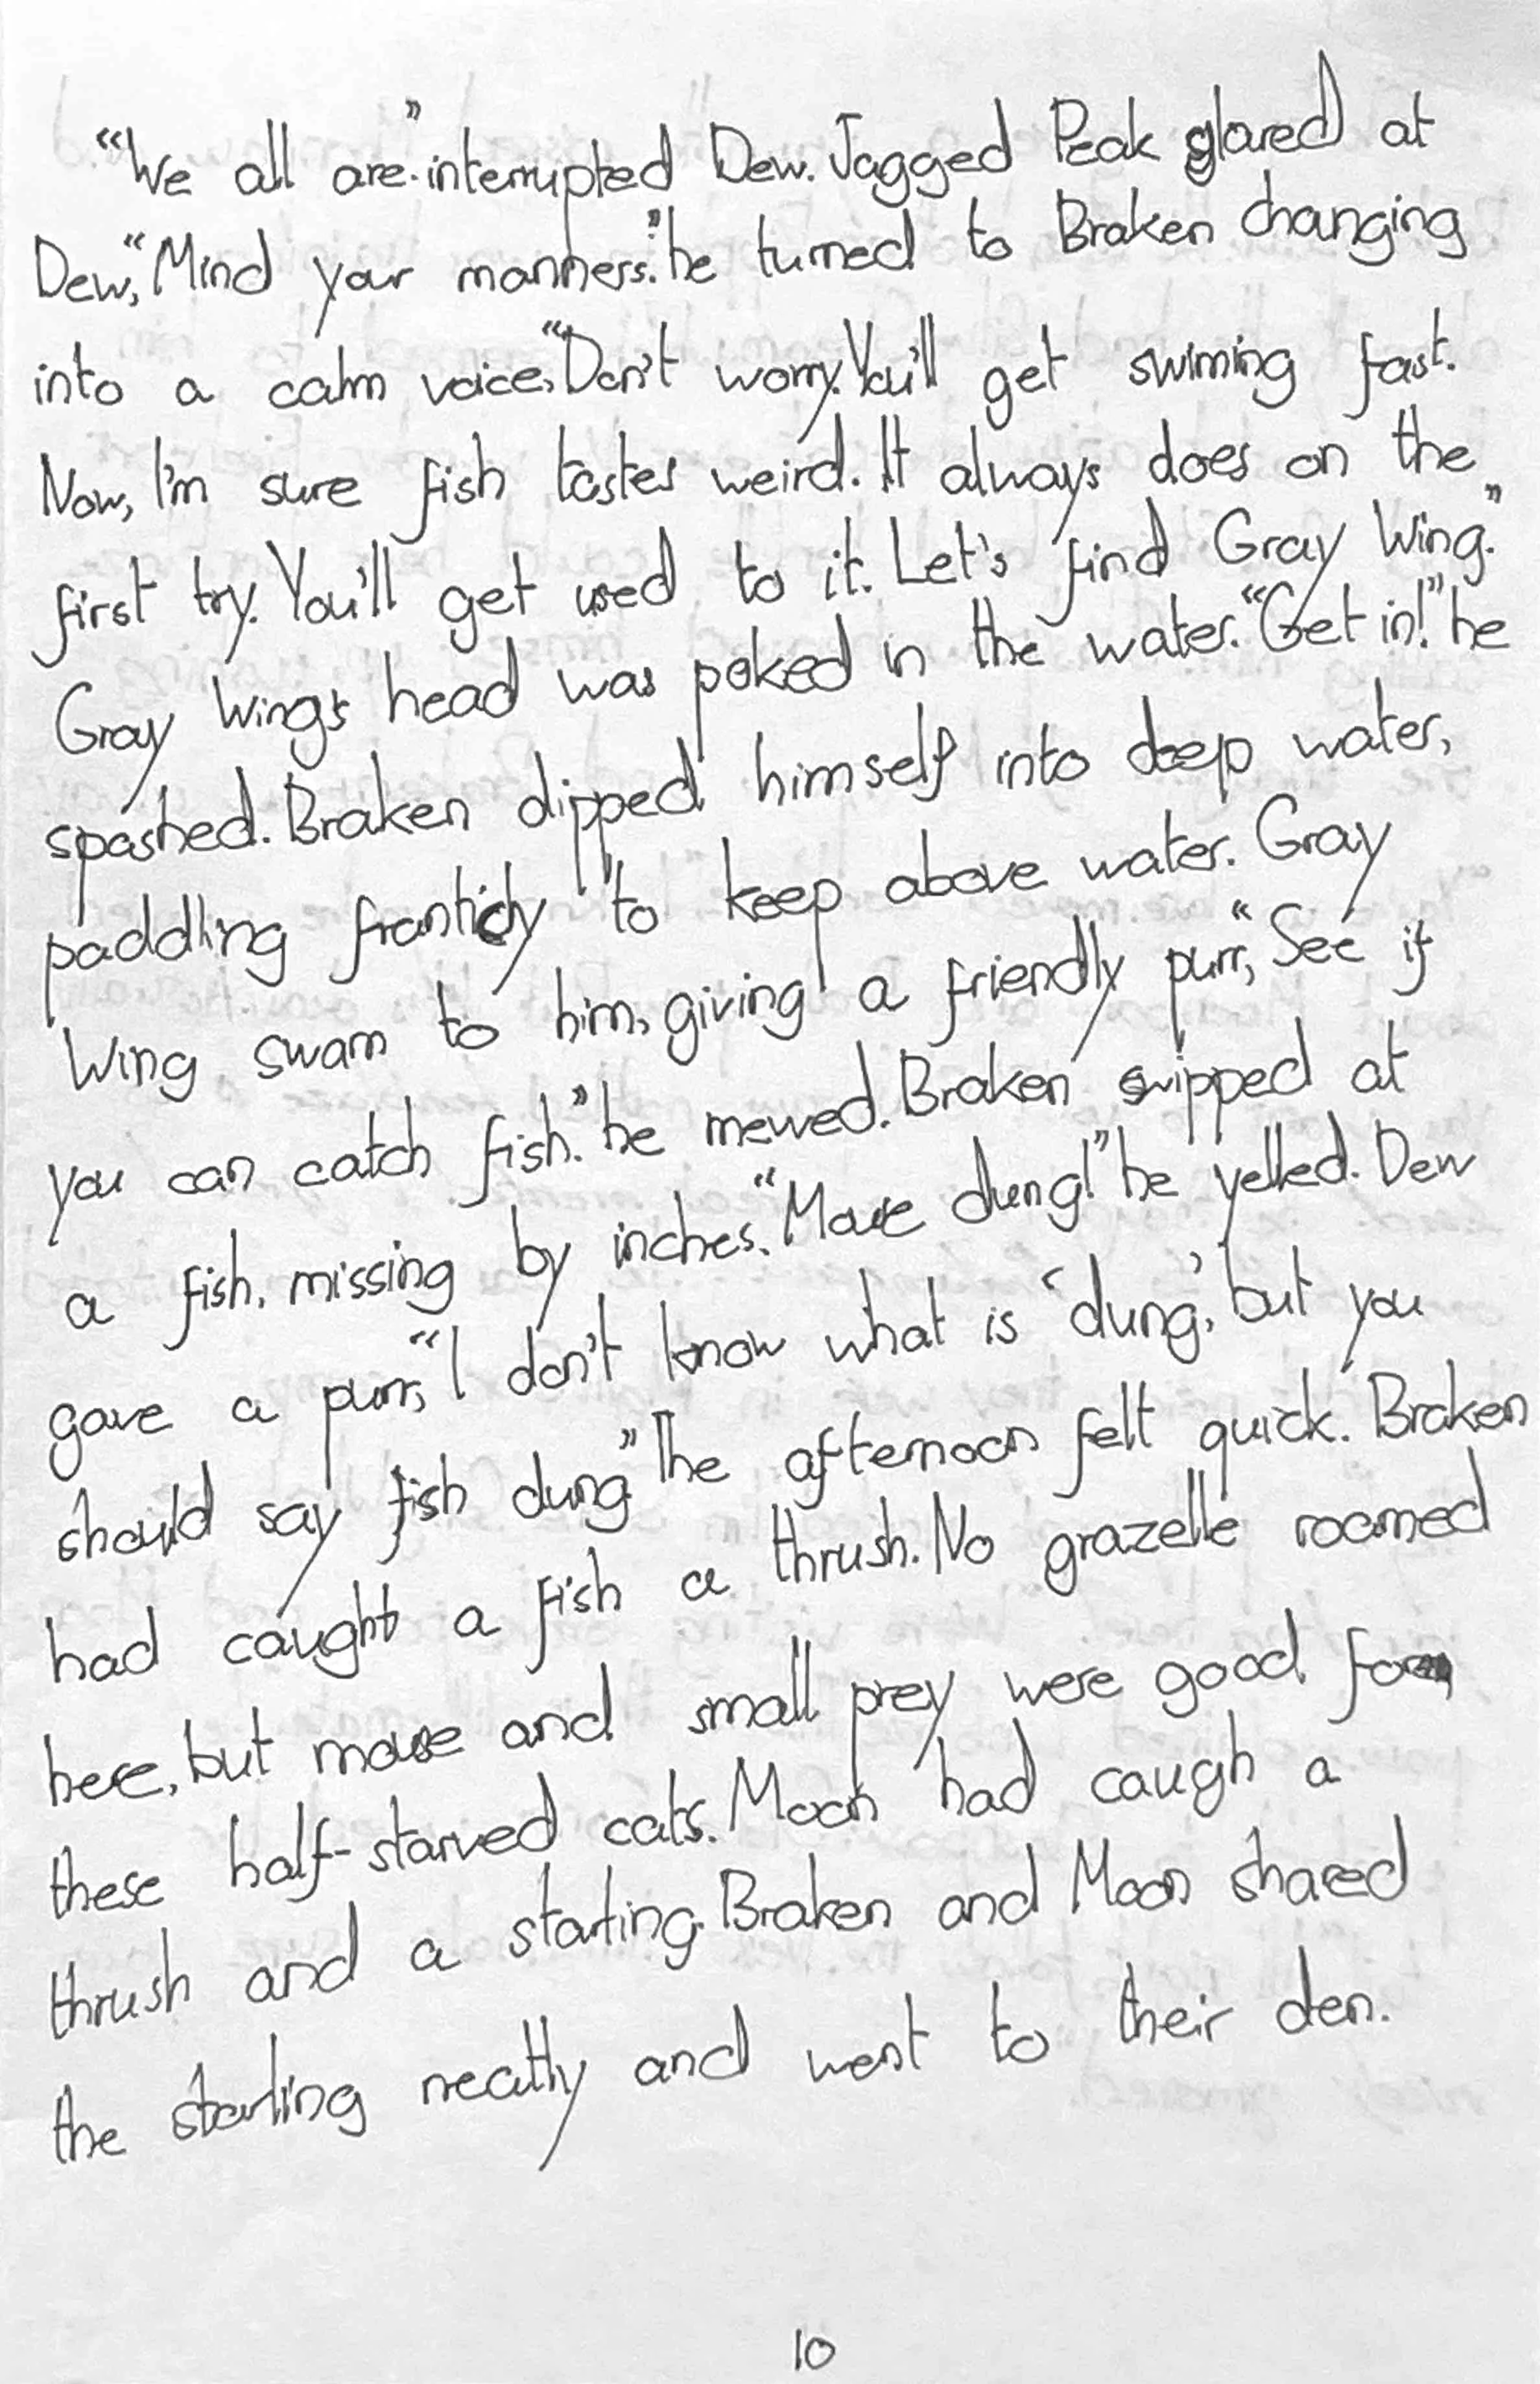 “We all are.” interrupted Dew. Jagged Peak glared at
Dew, “Mind your manners.” he turned to Braken changing
into a calm voice, “Don't worry. You'll get swiming fast.
Now, I'm sure fish tastes weird. It always does on the
first try. You'll get used to it. Let's find Gray Wing.”
Gray Wing's head was poked in the water. “Get in!” he
spashed. Braken dipped himself into deep water,
paddling franticly to keep above water. Gray
Wing swam to him, giving a friendly purr, “See if
you can catch fish.” he mewed. Braken swipped at
a fish, missing by inches. “Mouse dung!” he yelled. Dew
gave a purr, “I don't know what is ‘dung’, but you
should say fish dung” The afternoon felt quick. Braken
had caught a fish a thrush. No grazelle roamed
here, but mouse and small prey were good for
these half-starved cats. Moon had caugh a
thrush and a starting. Braken and Moon shared
the starling neatly and went to their den.
10